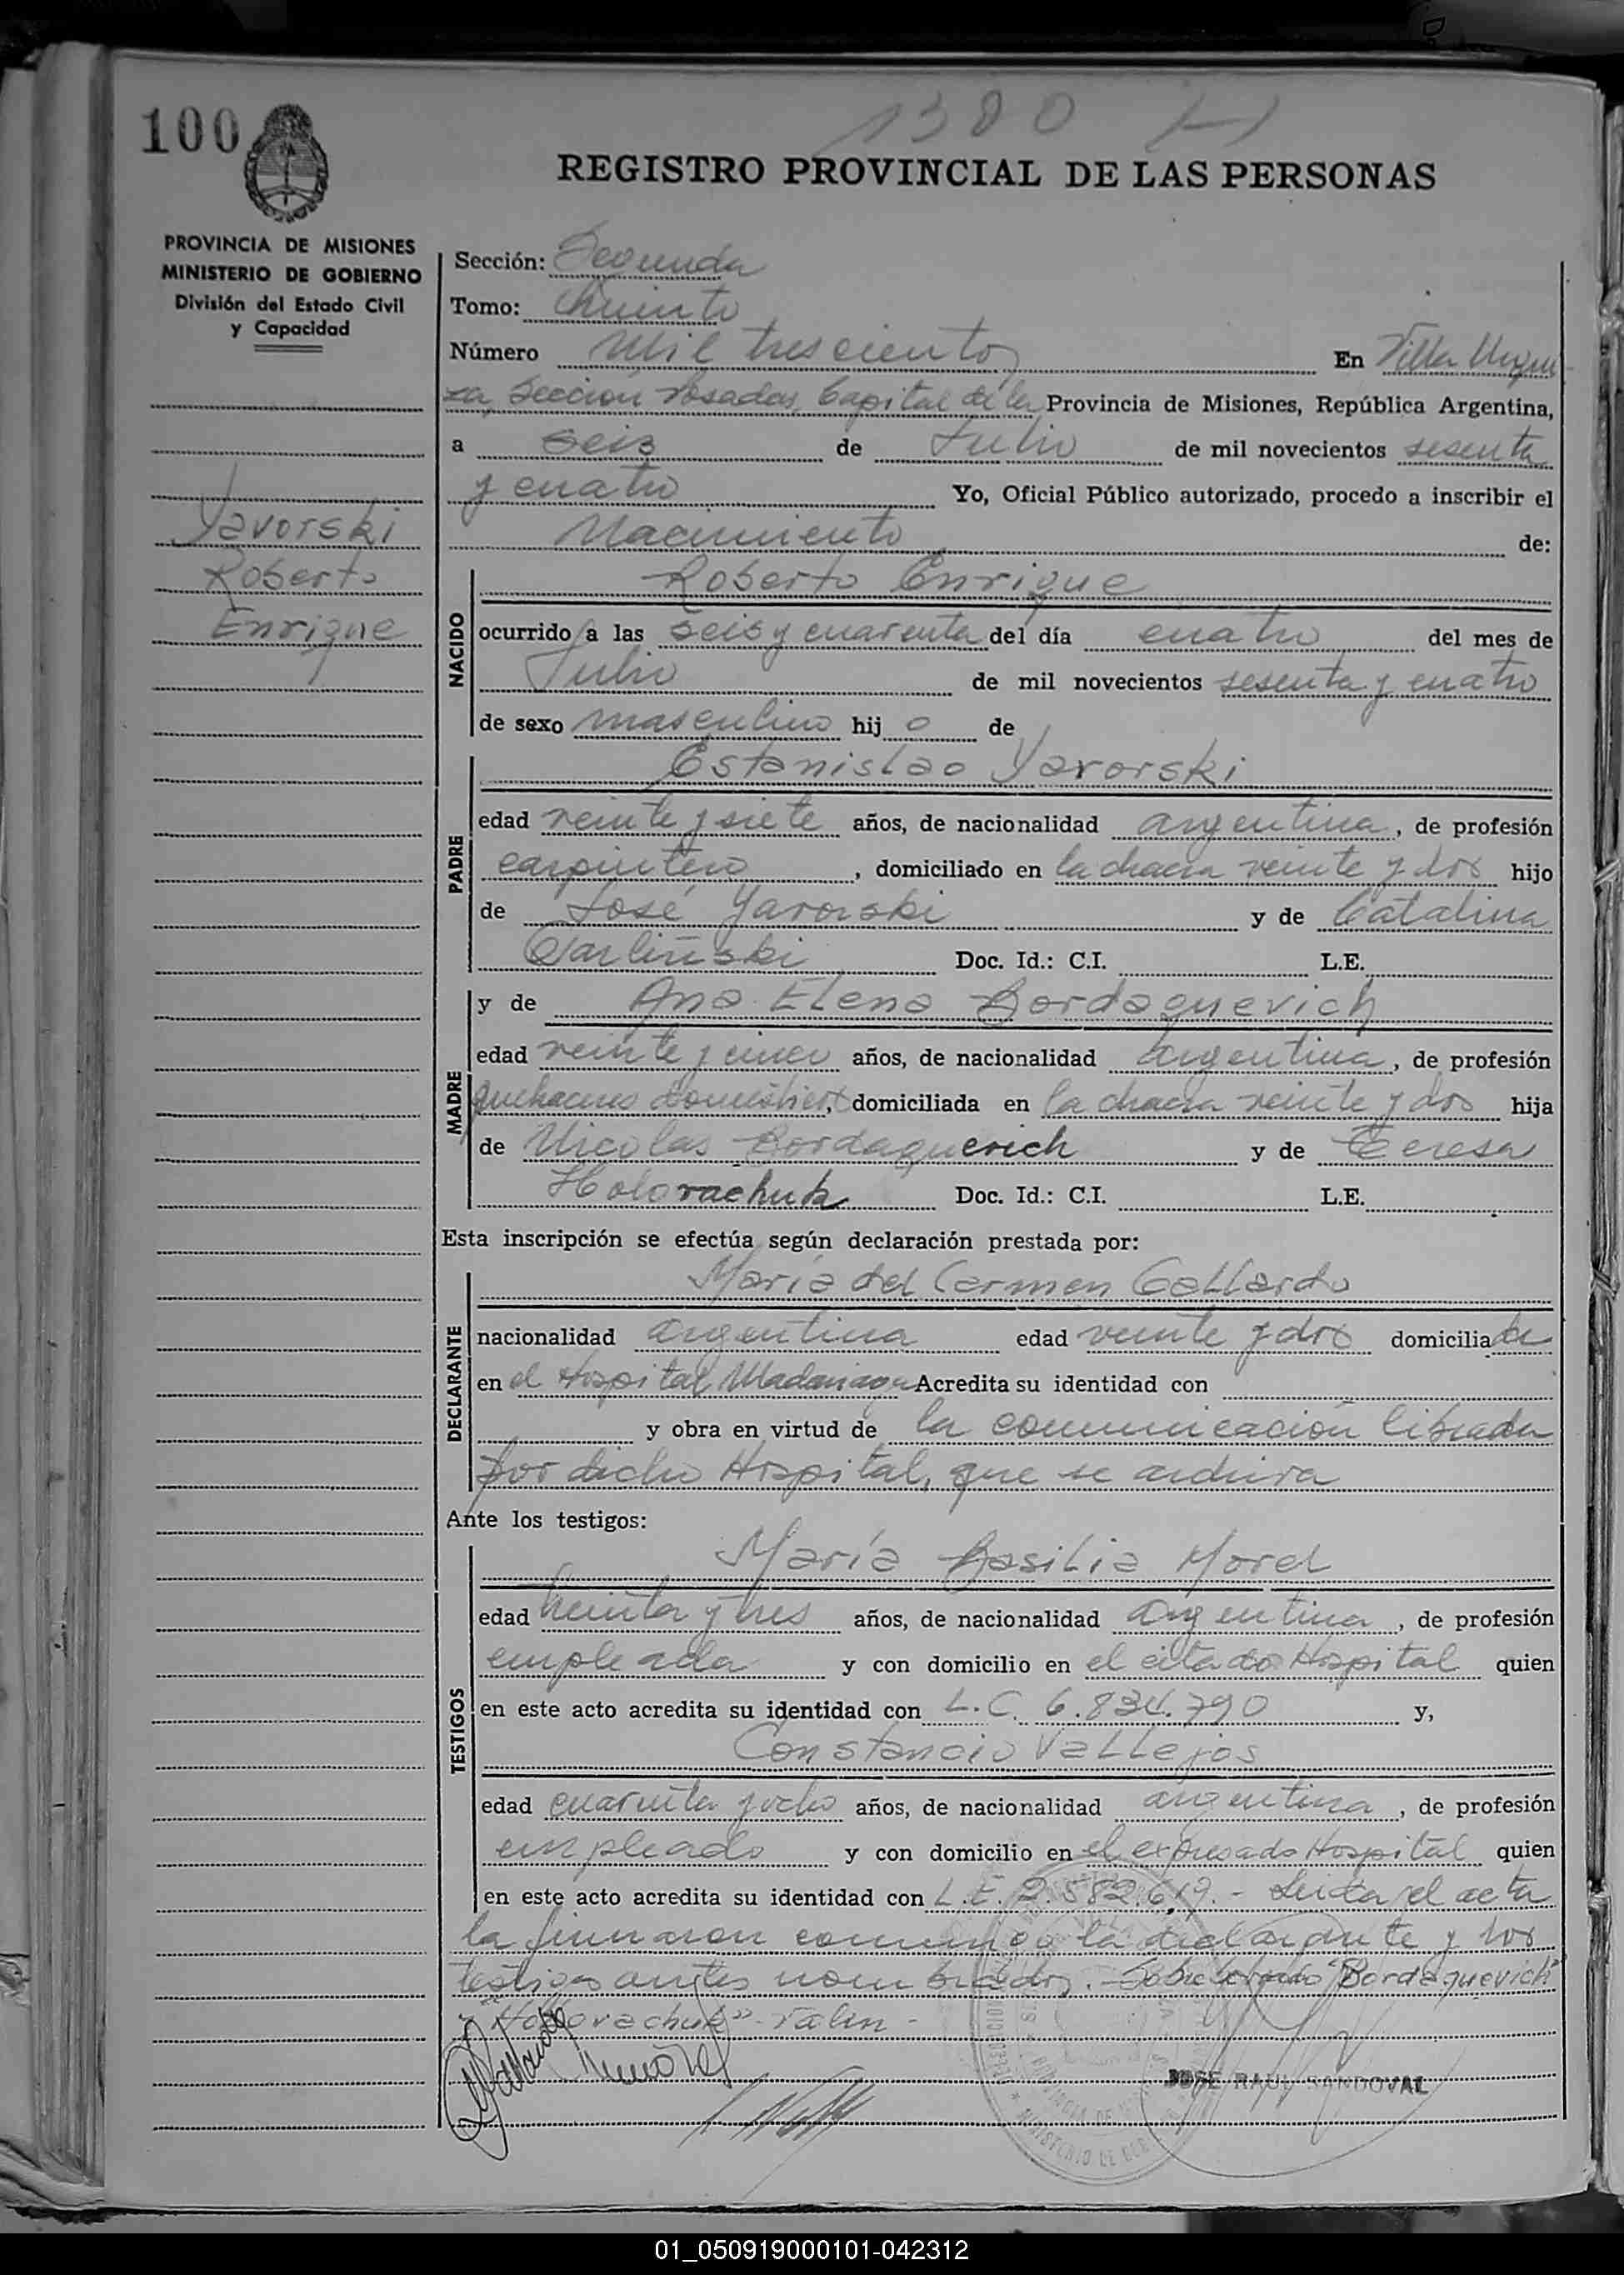 1300 H
100
REGISTRO PROVINCIAL DE LAS PERSONAS
PROVINCIA DE MISIONES
MINISTERIO DE GOBIERNO
División del Estado Civil
y Capacidad
Yavorski
Roberto
Enrique
Sección: Segunda
Tomo: Quinto
Número Mil trescientos En Villa Urqui
za, Sección Posadas, Capital de la Provincia de Misiones, República Argentina,
a seis de Julio de mil novecientos sesenta
y cuatro Yo, Oficial Público autorizado, procedo a inscribir el
Nacimiento de:
NACIDO
Roberto Enrique
ocurrido a las seis y cuarenta del día cuatro del mes de
Julio de mil novecientos sesenta y cuatro
de sexo masculino hij o de
PADRE
Estanislao Yavorski
edad veinte y siete años, de nacionalidad argentina, de profesión
carpintero, domiciliado en la chacra veinte y dos hijo
de José Yavorski y de Catalina
Doc. Id.: C.I. L.E.
MADRE
y de Ana Elena Bordaquevich
edad veinte y cinco años, de nacionalidad argentina, de profesión
quehaceres domésticos, domiciliada en la chacra veinte y dos hija
de Nicolas Bordaquevich y de Teresa
Holovachuk Doc. Id.: C.I. L.E.
Esta inscripción se efectúa según declaración prestada por:
DECLARANTE
María del Carmen Gallardo
nacionalidad argentina edad veinte y dos domiciliada
en el Hospital Madariaga Acredita su identidad con
y obra en virtud de la comunicación librada
por dicho Hospital, que se archiva
Ante los testigos:
TESTIGOS
María Basilia Morel
edad treinta y tres años, de nacionalidad argentina, de profesión
empleada y con domicilio en el citado Hospital quien
en este acto acredita su identidad con L.C. 6.834.790 y,
Constancio Vallejos
edad cuarenta y ocho años, de nacionalidad argentina, de profesión
empleado y con domicilio en el expresado Hospital quien
en este acto acredita su identidad con L.E. 2.582.619.- Leida el acta
la firmaron conmigo la declarante y los
testigos antes nombrados. Sobreborrado "Bordaquevich"
"Holovachuk". Valen -
JOSE RAUL SANDOVAL
01_050919000101-042312